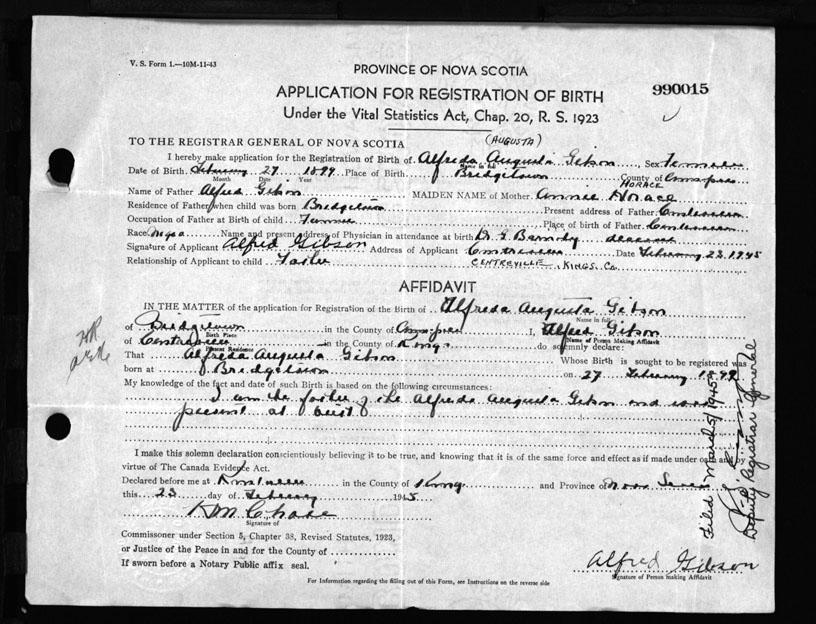 V. S. Form 1.—10M-11-43
PROVINCE OF NOVA SCOTIA
990015
APPLICATION FOR REGISTRATION OF BIRTH
Under the Vital Statistics Act, Chap. 20, R. S. 1923
TO THE REGISTRAR GENERAL OF NOVA SCOTIA
(AUGUSTA)
I hereby make application for the Registration of Birth of Alfreda Augusta Gibson, Sex Female
Name in full
Date of Birth February 27 Place of Birth Bridgetown County of Annapolis
Month Date Year
HORACE
Name of Father Alfred Gibson MAIDEN NAME of Mother Annie Horace
Residence of Father when child was born Bridgetown Present address of Father
Occupation of Father at Birth of child Place of birth of Father
Race Name and present address of Physician in attendance at birth deceased
Signature of Applicant Alfred Gibson Address of Applicant Centreville Date February 23 1945
Relationship of Applicant to child Father CENTREVILLE, KINGS, Co.
AFFIDAVIT
IN THE MATTER of the application for Registration of the Birth of Alfreda Augusta Gibson
Name in full
of Bridgetown in the County of Annapolis I, Alfred Gibson
Birth Place Name of Person Making Affidavit
of Centreville in the County of Kings do solemnly declare:
Present Residence
That Alfreda Augusta Gibson Whose Birth is sought to be registered was
born at Bridgetown on 27 February
My knowledge of the fact and date of such Birth is based on the following circumstances:
I am the father of the Alfreda Augusta Gibson and was
present at birth
I make this solemn declaration conscientiously believing it to be true, and knowing that it is of the same force and effect as if made under oath and by
virtue of The Canada Evidence Act.
Declared before me at in the County of Kings and Province of Nova Scotia
this 23 day of February 1945
Signature of
Commissioner under Section 5, Chapter 38, Revised Statutes, 1923,
or Justice of the Peace in and for the County of
If sworn before a Notary Public affix seal.
Alfred Gibson
Signature of Person making Affidavit
For Information regarding the filling out of this Form, see Instructions on the reverse side
Filed March 5/1945
Deputy Registrar General